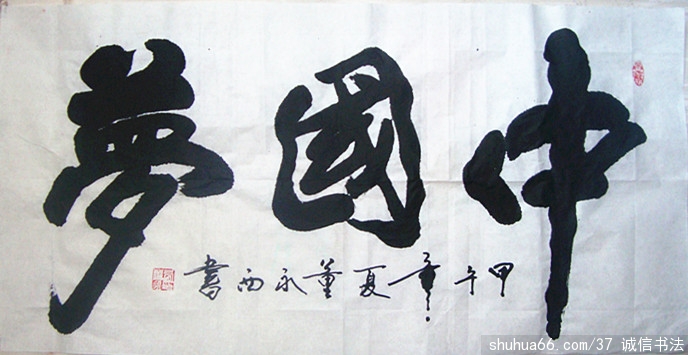 中國夢
甲午年夏董永西書
shuhua66.com/37 诚信书法